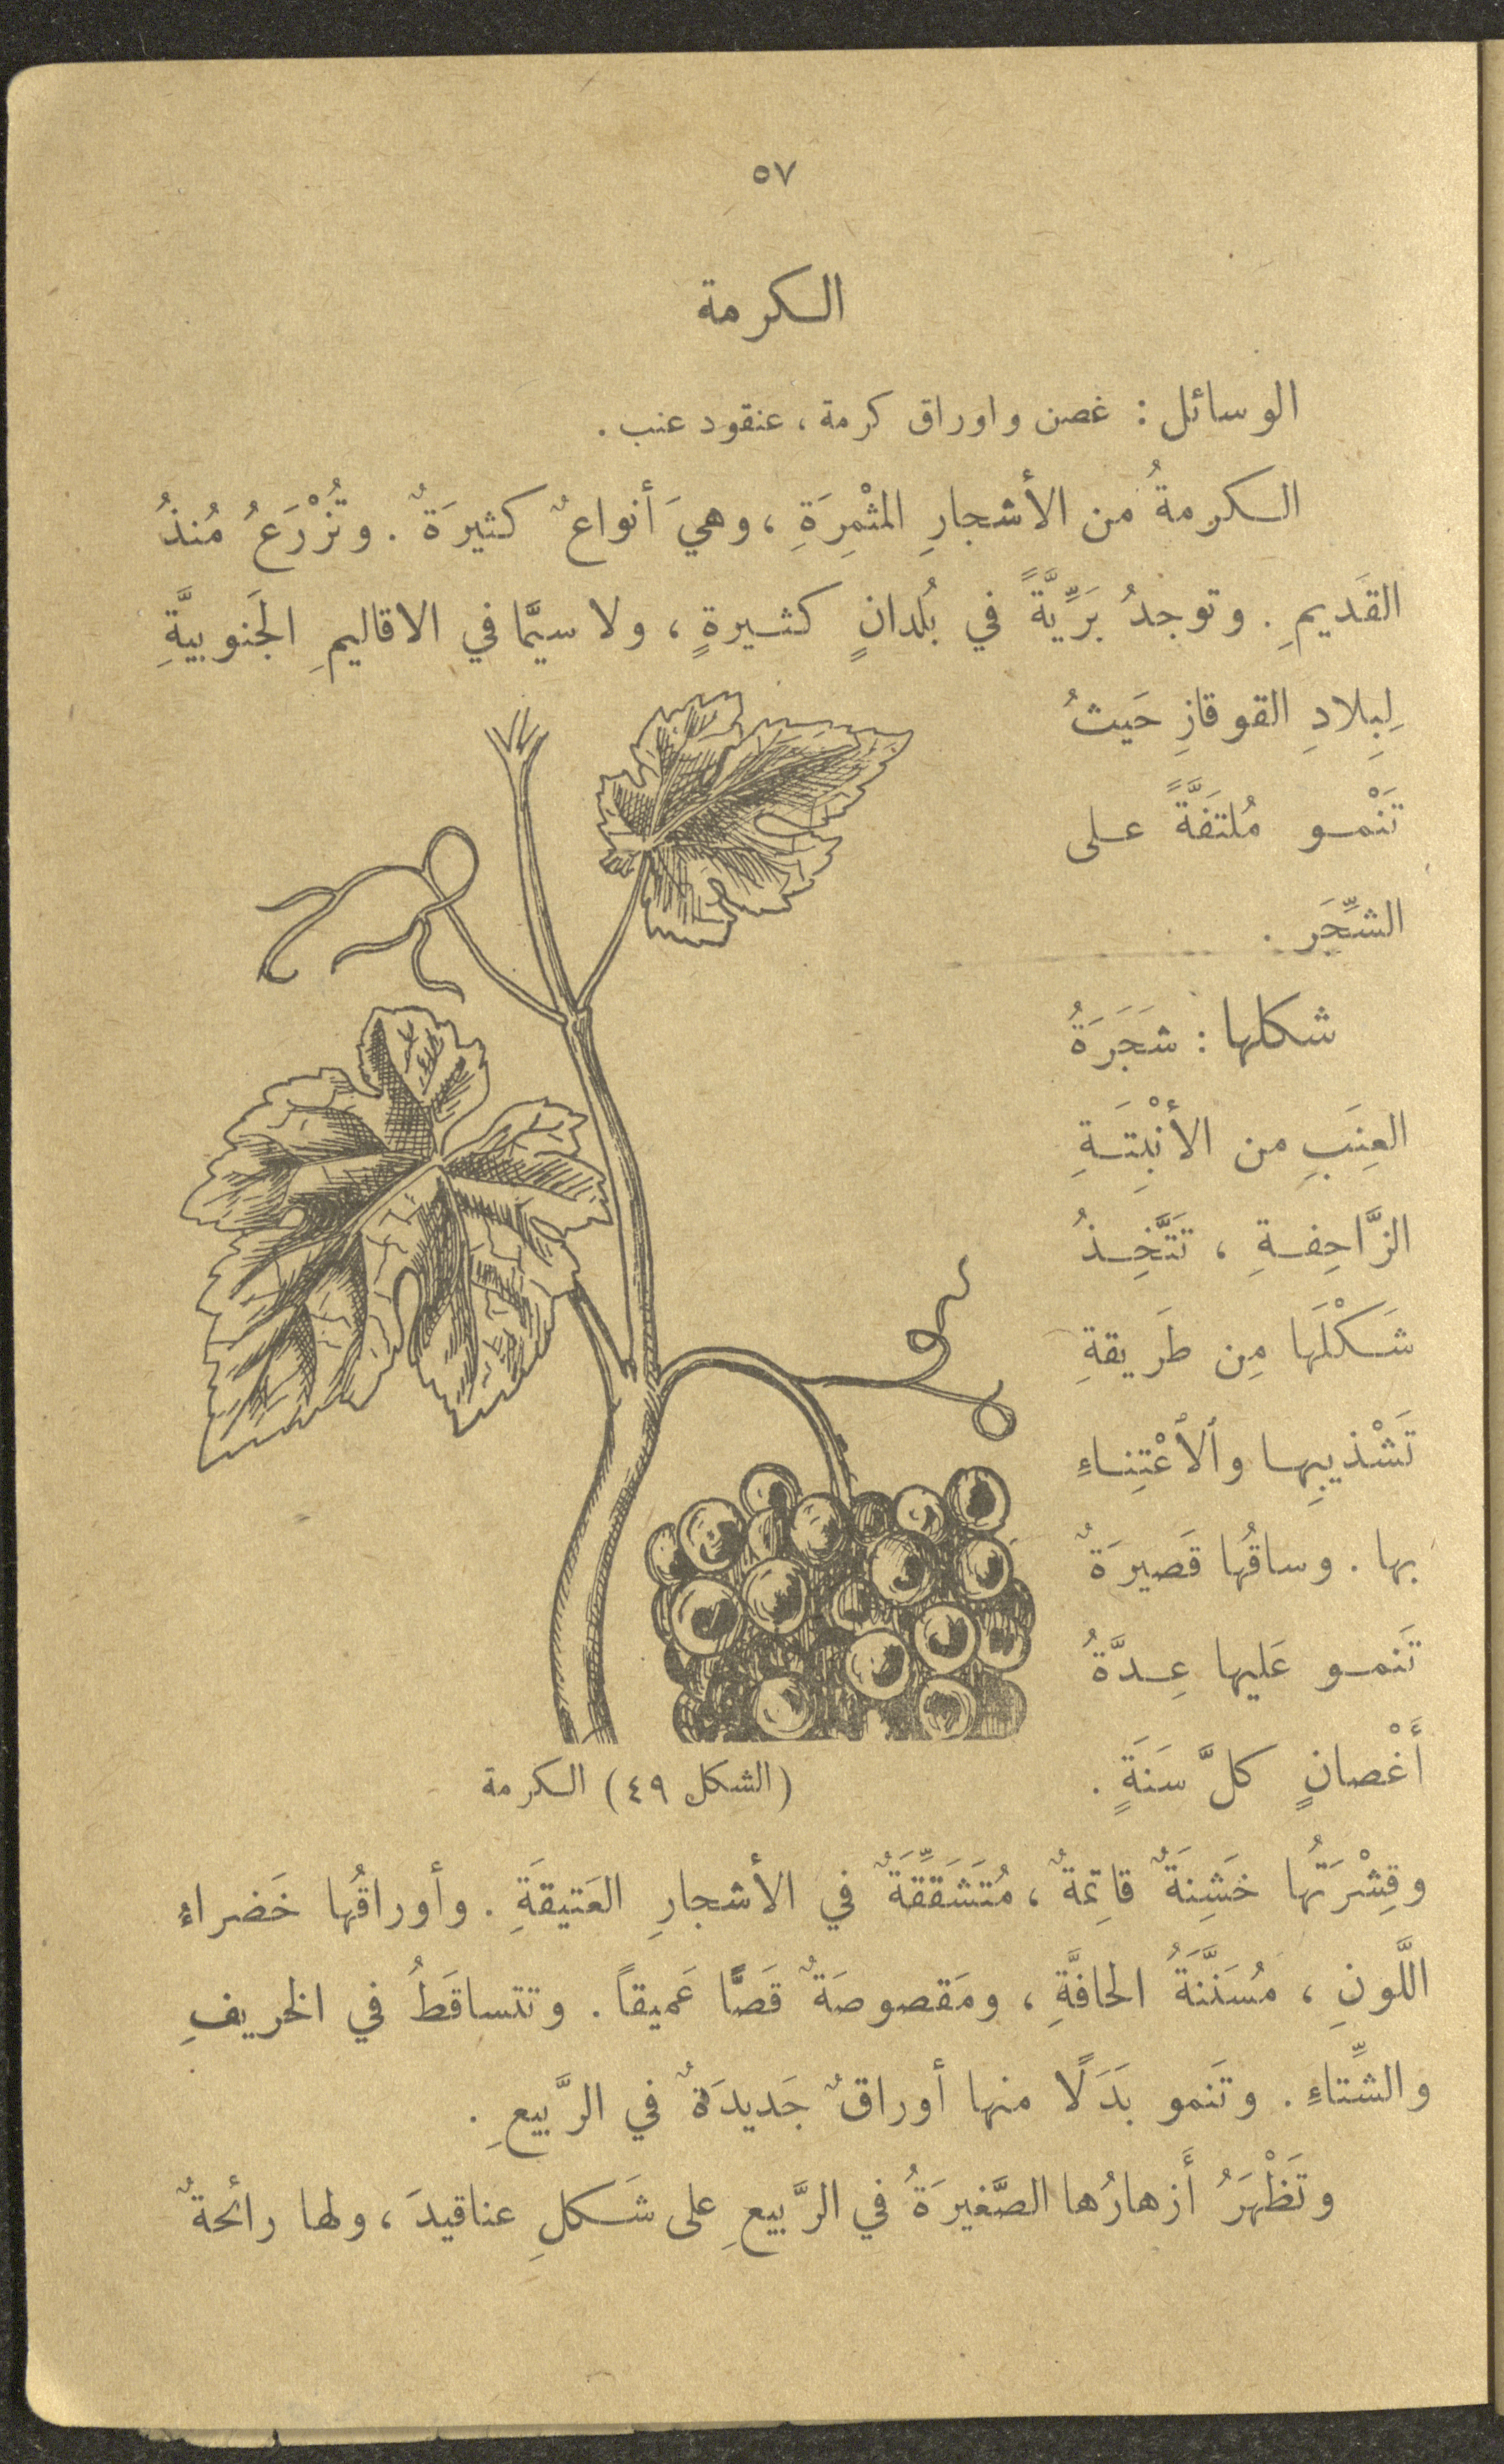 ٥٧
الكرمة
الوسائل : غصن واوراق كرمة ، عنقود عنب .
الكرمةُ من الأشجارِ المثْمِرَةِ ، وهيَ أنواعٌ كثيرَةٌ . وتُزْرَعُ مُنذُ
القَديمِ . وتوجدُ بَرِّيَّةً في بُلدانٍ كثيرةٍ ، ولا سيَّما في الاقاليمِ الجَنوبيَّةِ
لِبِلادِ القوقازِ حَيثُ
تَنْمو مُلتَفَّةً على
الشَّجَرِ .
شكلها : شَجَرَةُ
العِنَبِ من الأنْبِتَةِ
الزَّاحِفةِ ، تَتَّخِذُ
شَكْلَهَا مِن طَريقةِ
تَشْذيبِها وٱلاعْتِناءِ
بها . وساقُها قَصيرَةٌ
تَنمو عَليها عِدَّةُ
أَغْصانٍ كلَّ سَنَةٍ .
(الشكل ٤٩) الكرمة
وقِشْرَتُها خَشِنَةٌ قاتِمةٌ ، مُتَشَقِّقَةٌ في الأشجارِ العَتيقَةِ . وأوراقُها خَضراءُ
اللَّونِ ، مُسَنَّنَةُ الحافَّةِ ، ومَقصوصَةٌ قَصًّا عَميقاً . وتتساقَطُ في الخريفِ
والشِّتاءِ . وتَنمو بَدَلًا منها أوراقٌ جَديدَةٌ في الرَّبيعِ .
وتَظْهَرُ أَزهارُها الصَّغيرَةُ في الرَّبيعِ على شَكلِ عناقيدَ ، ولها رائحةٌ